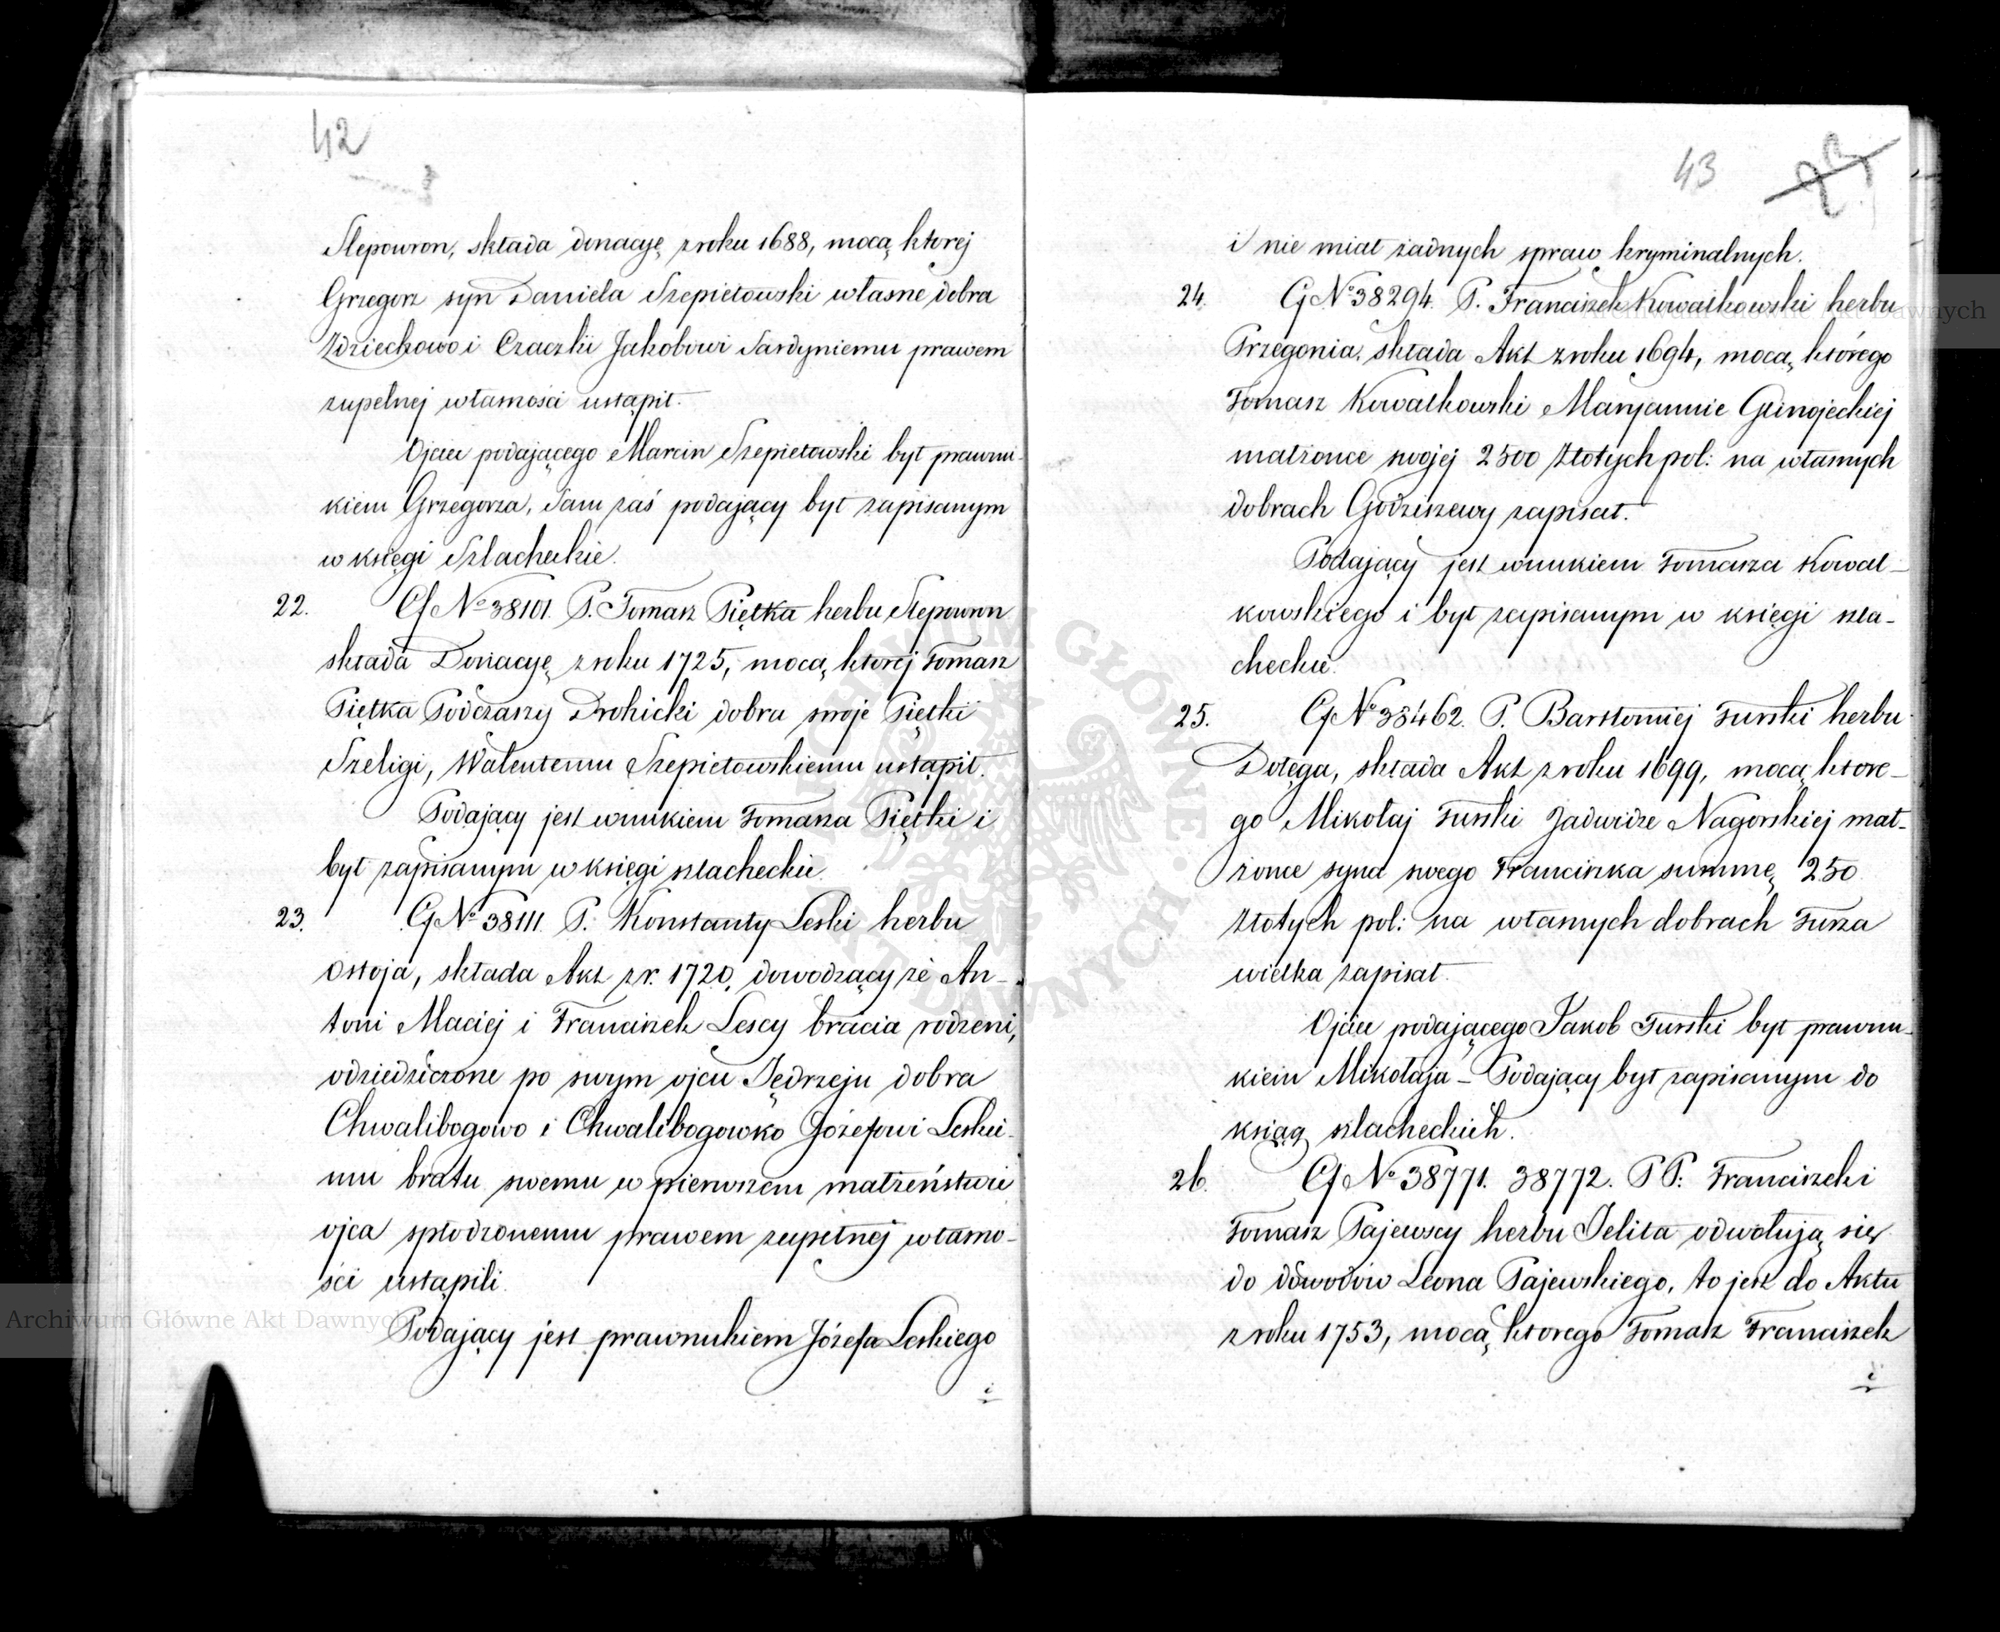 42
Slepowron, składa donacyę z roku 1688, mocą ktorej
Grzegorz syn Daniela Szepietowski własne dobra
Zdziechowo i Czaczki Jakobowi Sardyniemu prawem
zupełnej własności ustąpił.
Ojciec podającego Marcin Szepietowski był prawnu-
kiem Grzegorza, Sam zaś podający był zapisanym
w księgi Szlacheckie.
22. G No 38101. P. Tomasz Piętka herbu Slepowron
składa Donacyę z roku 1725, mocą ktorej Tomasz
Piętka Podczaszy Drohicki dobra swoje Piętki
Szeligi, Walentemu Szepietowskiemu ustąpił.
Podający jest wnukiem Tomasza Piętki i
był zapisanym w księgi szlacheckie.
23. G No 38111. P. Konstanty Leski herbu
Ostoja, składa Akt z r. 1720, dowodzący że An-
toni Maciej i Franciszek Lescy bracia rodzeni,
odziedziczone po swym ojcu Jędrzeju dobra
Chwalibogowo i Chwalibogowko Józefowi Leskie-
mu bratu swemu w pierwszem małżeństwie
ojca spłodzonemu prawem zupełnej własno-
ści ustąpili.
Podający jest prawnukiem Józefa Leskiego
i
43
i nie miał żadnych spraw kryminalnych.
24. G No 38294. P. Franciszek Kowalkowski herbu
Przegonia, składa Akt z roku 1694, mocą którego
Tomasz Kowalkowski Maryannie Glinojeckiej
małżonce swojej 2500 Złotych pol: na własnych
dobrach Godziszewy zapisał.
Podający jest wnukiem Tomasza Kowal-
kowskiego i był zapisanym w księgi szla-
checkie.
25. G No 38462. P. Bartłomiej Turski herbu
Dołęga, składa Akt z roku 1699, mocą które-
go Mikołaj Turski Jadwidze Nagorskiej mał-
żonce syna swego Franciszka summę 250
Złotych pol: na własnych dobrach Tursza
wielka zapisał.
Ojciec podającego Jakob Turski był prawnu-
kiem Mikołaja – Podający był zapisanym do
ksiąg szlacheckich.
26. G No 38771. 38772. PP. Franciszek i
Tomasz Pajewscy herbu Jelita odwołują się
do dowodów Leona Pajewskiego, to jest do Aktu
z roku 1753, mocą ktorego Tomasz Franciszek
i
ARCHIWUM GŁÓWNE AKT DAWNYCH
Archiwum Główne Akt Dawnych
Archiwum Główne Akt Dawnych